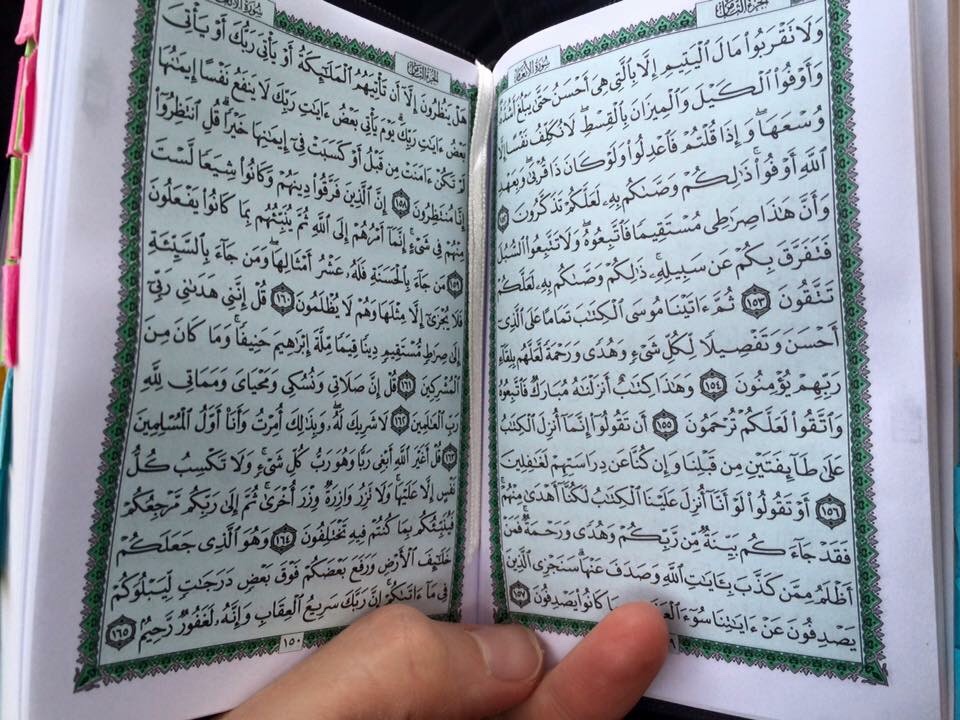 الجزء الثامن
سورة الأنعام
وَلَا تَقْرَبُوا۟ مَالَ ٱلْيَتِيمِ إِلَّا بِٱلَّتِى هِىَ أَحْسَنُ حَتَّىٰ يَبْلُغَ أَشُدَّهُۥ
وَأَوْفُوا۟ ٱلْكَيْلَ وَٱلْمِيزَانَ بِٱلْقِسْطِ لَا نُكَلِّفُ نَفْسًا إِلَّا
وُسْعَهَا وَإِذَا قُلْتُمْ فَٱعْدِلُوا۟ وَلَوْ كَانَ ذَا قُرْبَىٰ وَبِعَهْدِ
ٱللَّهِ أَوْفُوا۟ ذَٰلِكُمْ وَصَّىٰكُم بِهِۦ لَعَلَّكُمْ تَذَكَّرُونَ ١٥٢
وَأَنَّ هَٰذَا صِرَٰطِى مُسْتَقِيمًا فَٱتَّبِعُوهُ وَلَا تَتَّبِعُوا۟ ٱلسُّبُلَ
فَتَفَرَّقَ بِكُمْ عَن سَبِيلِهِۦ ذَٰلِكُمْ وَصَّىٰكُم بِهِۦ لَعَلَّكُمْ
تَتَّقُونَ ١٥٣ ثُمَّ ءَاتَيْنَا مُوسَى ٱلْكِتَٰبَ تَمَامًا عَلَى ٱلَّذِىٓ
أَحْسَنَ وَتَفْصِيلًا لِّكُلِّ شَىْءٍ وَهُدًى وَرَحْمَةً لَّعَلَّهُم بِلِقَآءِ
رَبِّهِمْ يُؤْمِنُونَ ١٥٤ وَهَٰذَا كِتَٰبٌ أَنزَلْنَٰهُ مُبَارَكٌ فَٱتَّبِعُوهُ
وَٱتَّقُوا۟ لَعَلَّكُمْ تُرْحَمُونَ ١٥٥ أَن تَقُولُوٓا۟ إِنَّمَآ أُنزِلَ ٱلْكِتَٰبُ
عَلَىٰ طَآئِفَتَيْنِ مِن قَبْلِنَا وَإِن كُنَّا عَن دِرَاسَتِهِمْ لَغَٰفِلِينَ
١٥٦ أَوْ تَقُولُوا۟ لَوْ أَنَّآ أُنزِلَ عَلَيْنَا ٱلْكِتَٰبُ لَكُنَّآ أَهْدَىٰ مِنْهُمْ
فَقَدْ جَآءَكُم بَيِّنَةٌ مِّن رَّبِّكُمْ وَهُدًى وَرَحْمَةٌ فَمَنْ
أَظْلَمُ مِمَّن كَذَّبَ بِـَٔايَٰتِ ٱللَّهِ وَصَدَفَ عَنْهَا سَنَجْزِى ٱلَّذِينَ
يَصْدِفُونَ عَنْ ءَايَٰتِنَا سُوٓءَ بِمَا كَانُوا۟ يَصْدِفُونَ ١٥٧
الجزء الثامن
سورة الأنعام
هَلْ يَنظُرُونَ إِلَّآ أَن تَأْتِيَهُمُ ٱلْمَلَٰٓئِكَةُ أَوْ يَأْتِىَ رَبُّكَ أَوْ يَأْتِىَ
بَعْضُ ءَايَٰتِ رَبِّكَ يَوْمَ يَأْتِى بَعْضُ ءَايَٰتِ رَبِّكَ لَا يَنفَعُ نَفْسًا إِيمَٰنُهَا
لَمْ تَكُنْ ءَامَنَتْ مِن قَبْلُ أَوْ كَسَبَتْ فِىٓ إِيمَٰنِهَا خَيْرًا قُلِ ٱنتَظِرُوٓا۟
إِنَّا مُنتَظِرُونَ ١٥٨ إِنَّ ٱلَّذِينَ فَرَّقُوا۟ دِينَهُمْ وَكَانُوا۟ شِيَعًا لَّسْتَ
مِنْهُمْ فِى شَىْءٍ إِنَّمَآ أَمْرُهُمْ إِلَى ٱللَّهِ ثُمَّ يُنَبِّئُهُم بِمَا كَانُوا۟ يَفْعَلُونَ
١٥٩ مَن جَآءَ بِٱلْحَسَنَةِ فَلَهُۥ عَشْرُ أَمْثَالِهَا وَمَن جَآءَ بِٱلسَّيِّئَةِ
فَلَا يُجْزَىٰٓ إِلَّا مِثْلَهَا وَهُمْ لَا يُظْلَمُونَ ١٦٠ قُلْ إِنَّنِى هَدَىٰنِى رَبِّىٓ
إِلَىٰ صِرَٰطٍ مُّسْتَقِيمٍ دِينًا قِيَمًا مِّلَّةَ إِبْرَٰهِيمَ حَنِيفًا وَمَا كَانَ مِنَ
ٱلْمُشْرِكِينَ ١٦١ قُلْ إِنَّ صَلَاتِى وَنُسُكِى وَمَحْيَاىَ وَمَمَاتِى لِلَّهِ
رَبِّ ٱلْعَٰلَمِينَ ١٦٢ لَا شَرِيكَ لَهُۥ وَبِذَٰلِكَ أُمِرْتُ وَأَنَا۠ أَوَّلُ ٱلْمُسْلِمِينَ
١٦٣ قُلْ أَغَيْرَ ٱللَّهِ أَبْغِى رَبًّا وَهُوَ رَبُّ كُلِّ شَىْءٍ وَلَا تَكْسِبُ كُلُّ
نَفْسٍ إِلَّا عَلَيْهَا وَلَا تَزِرُ وَازِرَةٌ وِزْرَ أُخْرَىٰ ثُمَّ إِلَىٰ رَبِّكُم مَّرْجِعُكُمْ
فَيُنَبِّئُكُم بِمَا كُنتُمْ فِيهِ تَخْتَلِفُونَ ١٦٤ وَهُوَ ٱلَّذِى جَعَلَكُمْ
خَلَٰٓئِفَ ٱلْأَرْضِ وَرَفَعَ بَعْضَكُمْ فَوْقَ بَعْضٍ دَرَجَٰتٍ لِّيَبْلُوَكُمْ
فِى مَآ ءَاتَىٰكُمْ إِنَّ رَبَّكَ سَرِيعُ ٱلْعِقَابِ وَإِنَّهُۥ لَغَفُورٌ رَّحِيمٌۢ ١٦٥
١٥٠